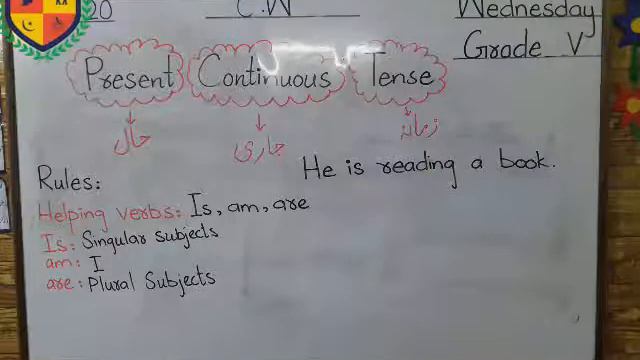 20 C.W Wednesday
Grade V
Present Continuous Tense
حال جاری زمانہ
He is reading a book.
Rules:
Helping verbs: Is, am, are
Is: Singular subjects
am: I
are: Plural Subjects